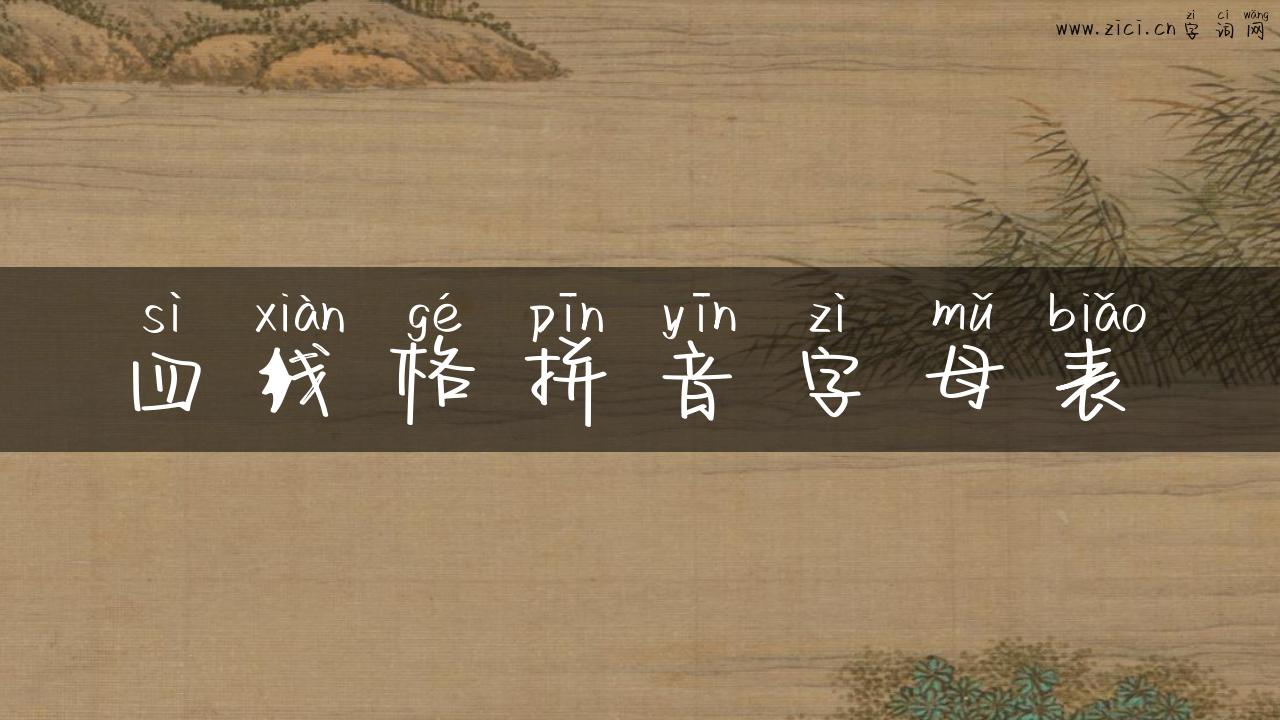 zì cí wǎng
www.zici.cn 字 词 网
sì xiàn gé pīn yīn zì mǔ biǎo
四 线 格 拼 音 字 母 表